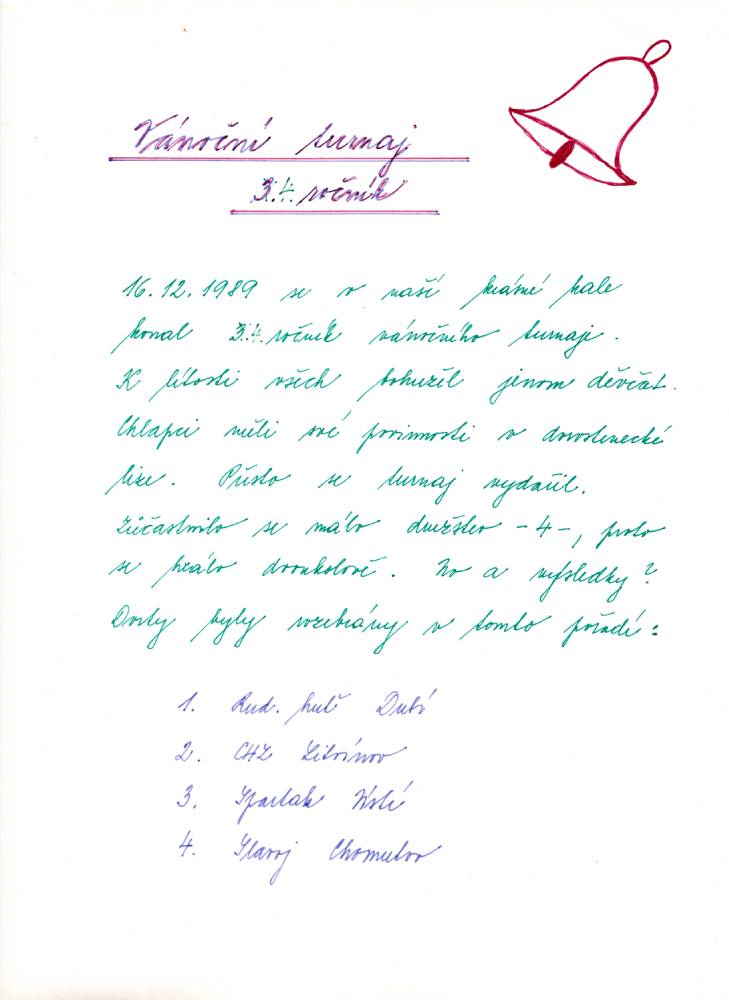 Vánoční turnaj
3.4. ročník
16.12.1989 se v naší krásné hale
konal 3.4. ročník vánočního turnaje.
K lítosti všech bohužel jenom děvčat.
Chlapci měli své povinnosti v dorostenecké
lize. Přesto se turnaj vydařil.
Zúčastnilo se málo družstev -4-, proto
se hrálo dvoukolově. No a výsledky?
Dorty byly rozebrány v tomto pořadí:
1. Rud. huť Dubí
2. CHZ Litvínov
3. Spartak Ústí
4. Slavoj Chomutov